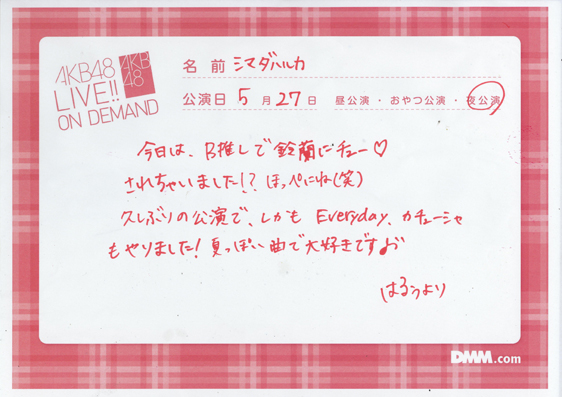 AKB48
LIVE!!
ON DEMAND
AKB
48
名前 シマダハルカ
公演日 5月27日 昼公演・おやつ公演・夜公演
今日は、B推しで鈴蘭にチュー♡
されちゃいました!?ほっぺにね(笑)
久しぶりの公演で、しかも Everyday、カチューシャ
もやりました!夏っぽい曲で大好きです♪
はるぅより
DMM.com